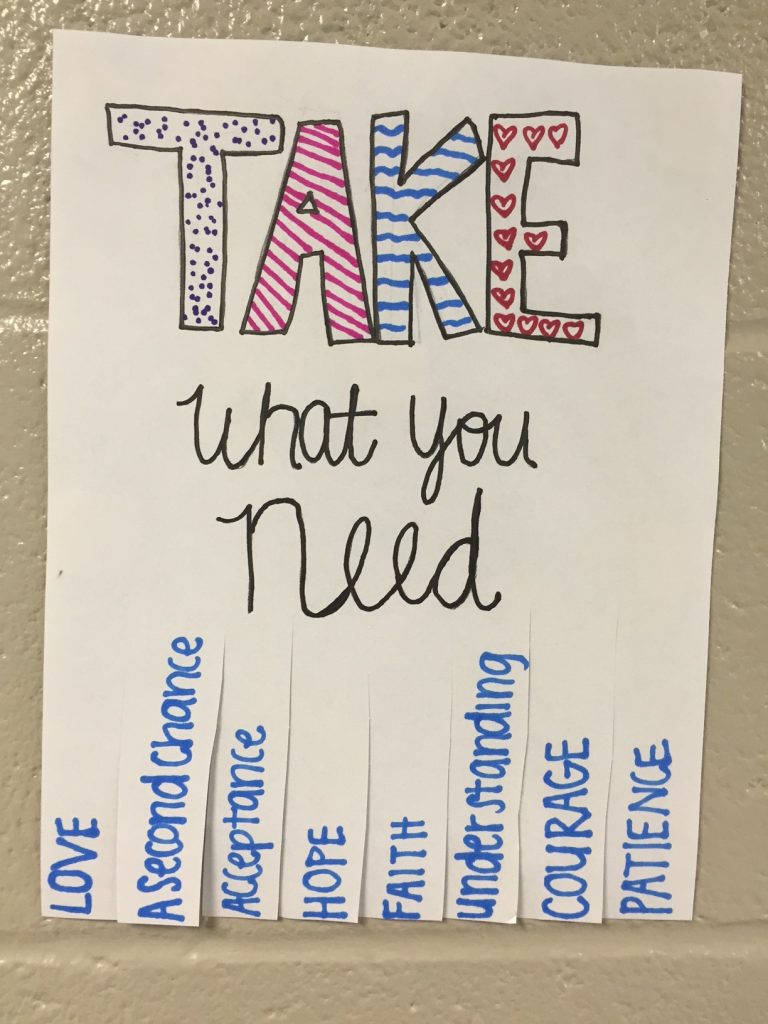 TAKE
What you
Need
LOVE
A second chance
Acceptance
HOPE
FAITH
understanding
COURAGE
PATIENCE